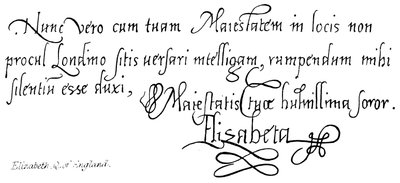 Nunc vero cum tuam Maiestatem in locis non
procul Londino sitis versari intelligam, rumpendum mihi
silentiū esse duxi,
Maiestatis tuæ humillima soror.
Elisabeta
Elizabeth Q. of England.